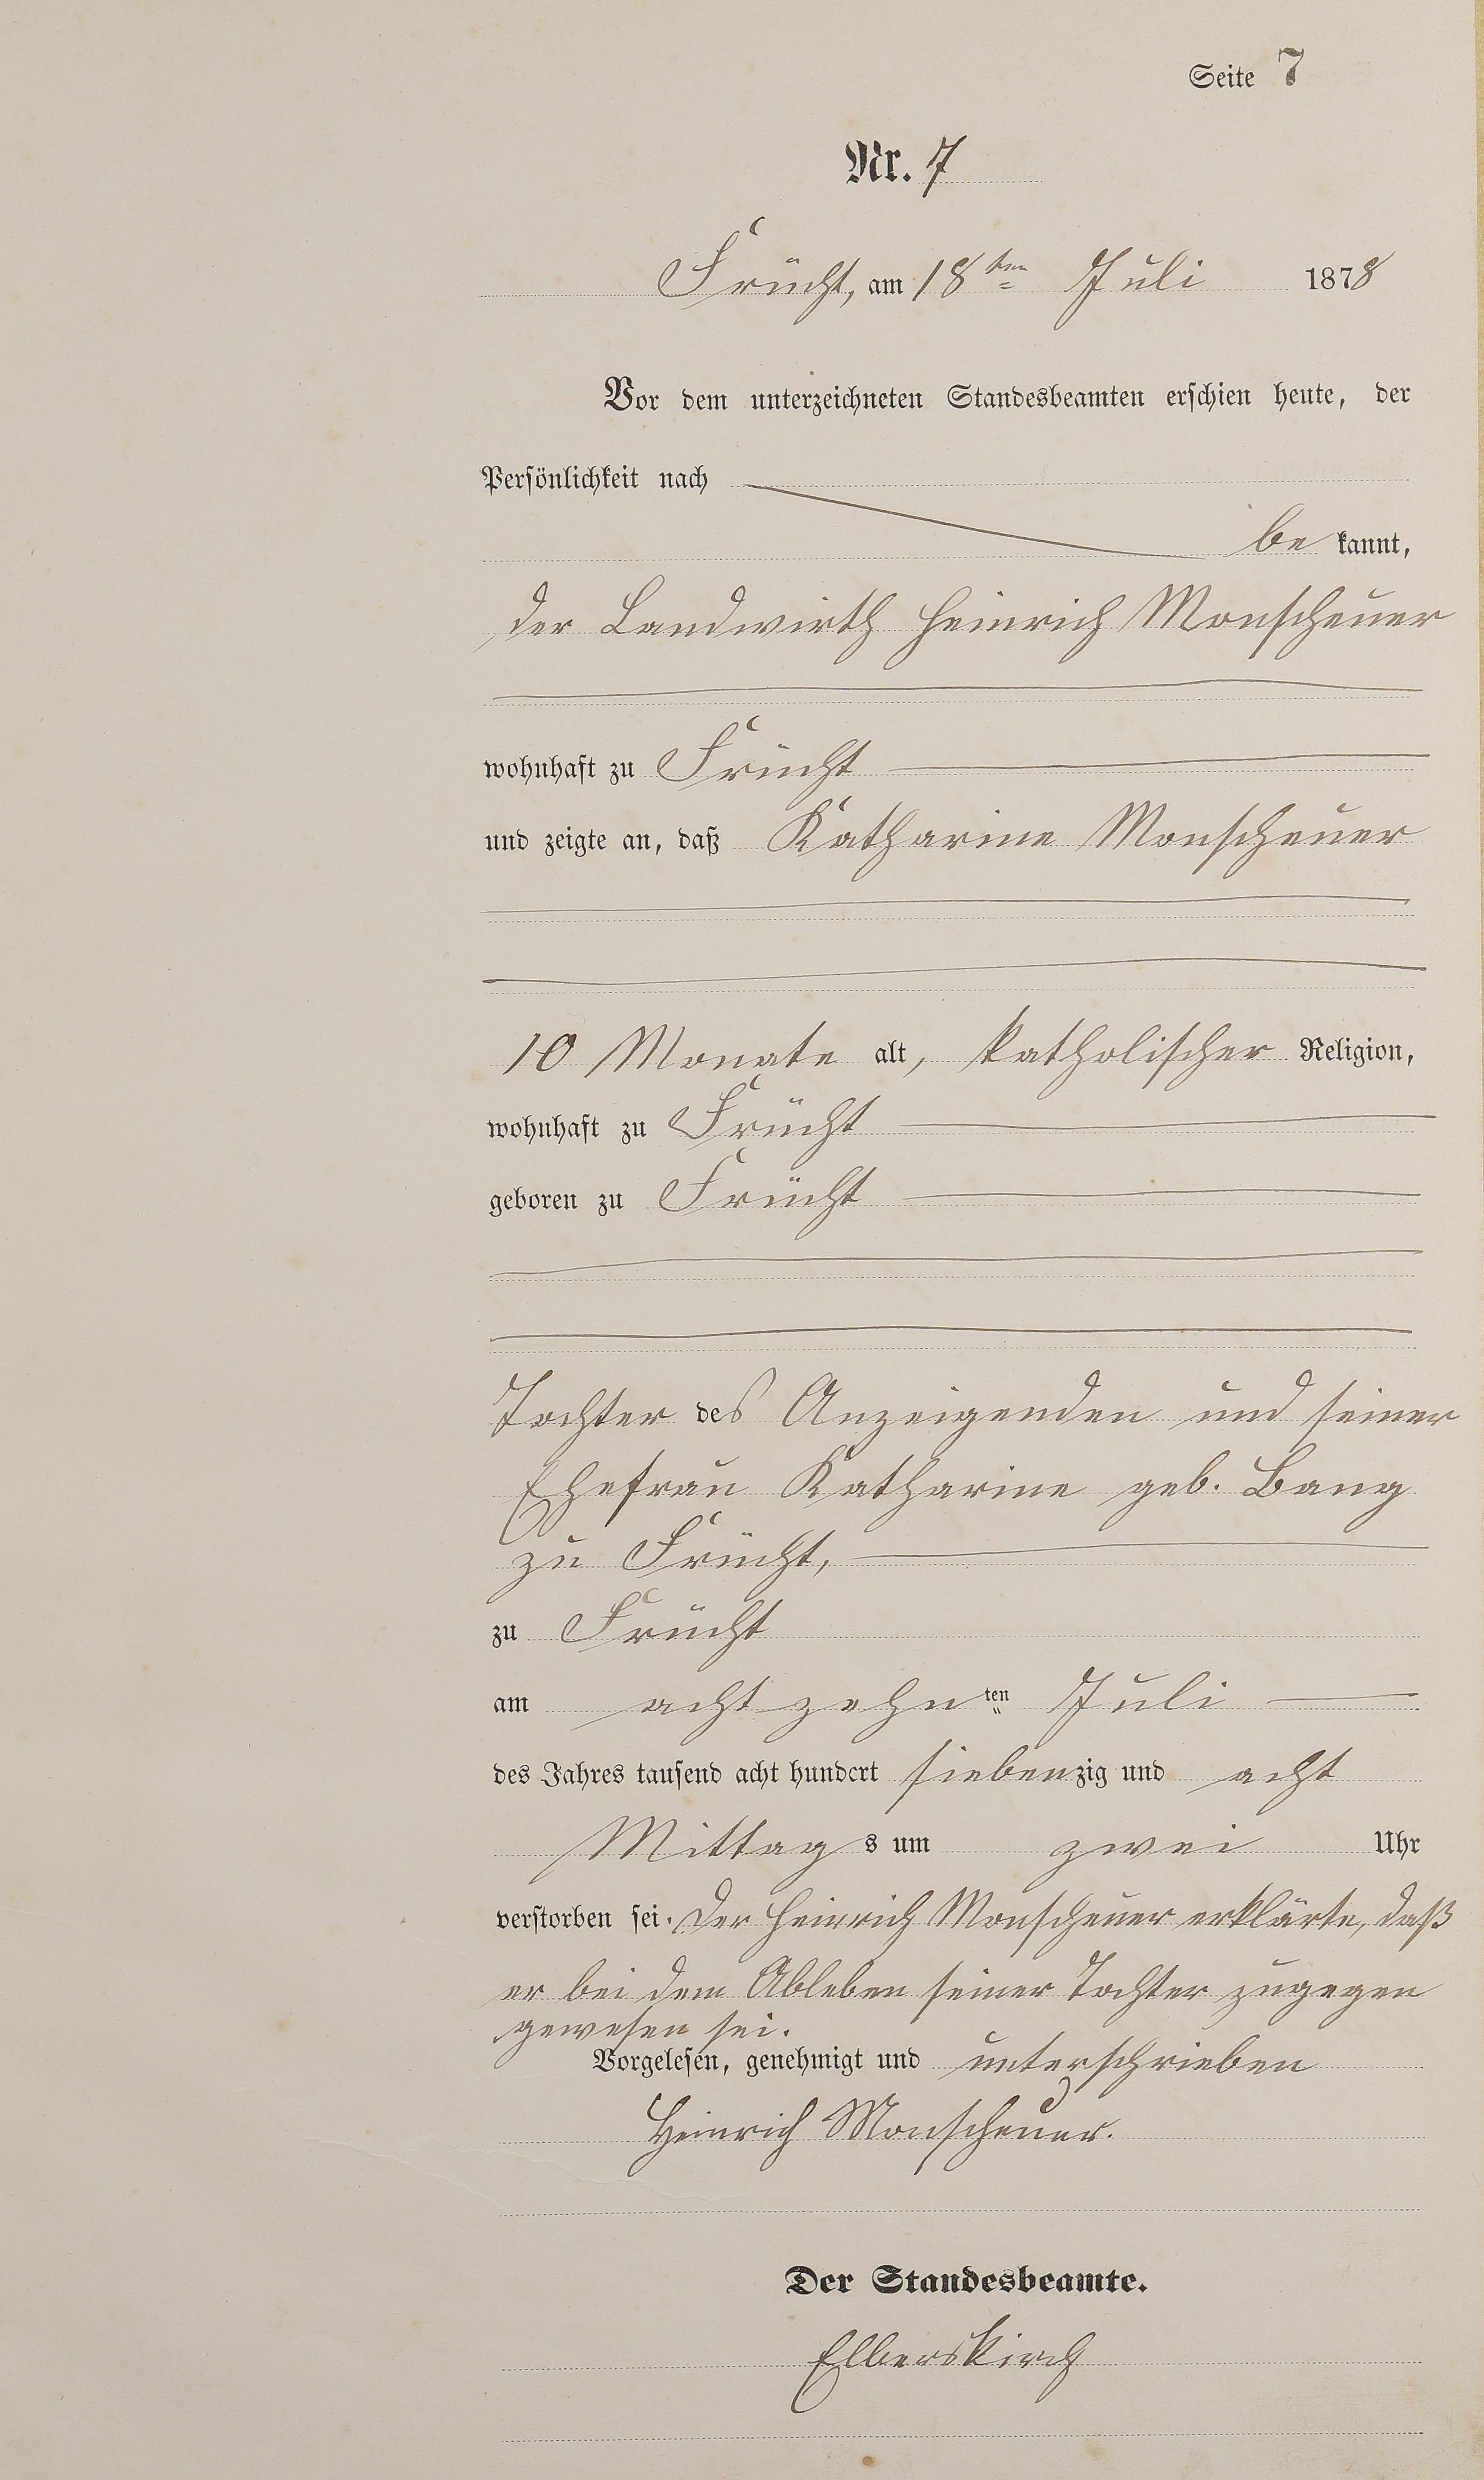 Seite 7
Nr. 7
Frücht, am 18ten Juli 1878
Vor dem unterzeichneten Standesbeamten erschien heute, der
Persönlichkeit nach
be kannt,
der Landwirth Heinrich Monscheuer
wohnhaft zu Frücht
und zeigte an, daß Katharine Monscheuer
10 Monate alt, katholischer Religion,
wohnhaft zu Frücht
geboren zu Frücht
Tochter des Anzeigenden und seiner
Ehefrau Katharine geb. Bang
zu Frücht,
zu Frücht
am achtzehnten Juli
des Jahres tausend acht hundert siebenzig und acht
Mittags um zwei Uhr
verstorben sei. Der Heinrich Monscheuer erklärte, daß
er bei dem Ableben seiner Tochter zugegen
gewesen sei.
Vorgelesen, genehmigt und unterschrieben
Heinrich Monscheuer.
Der Standesbeamte.
Elberskirch